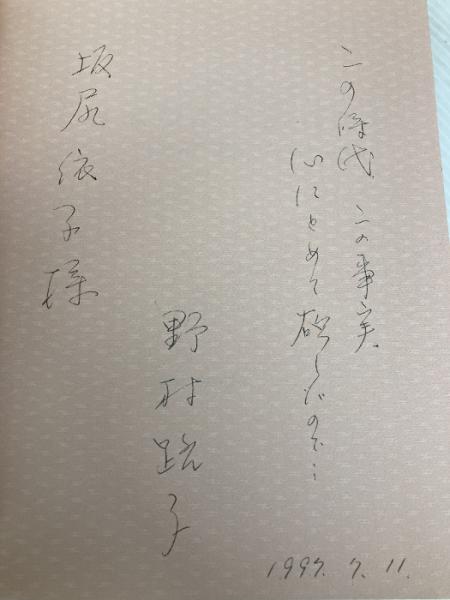 この時代、この事実、
心にとめて欲しいので…
野村路子
坂尻依子様
1997. 7. 11.